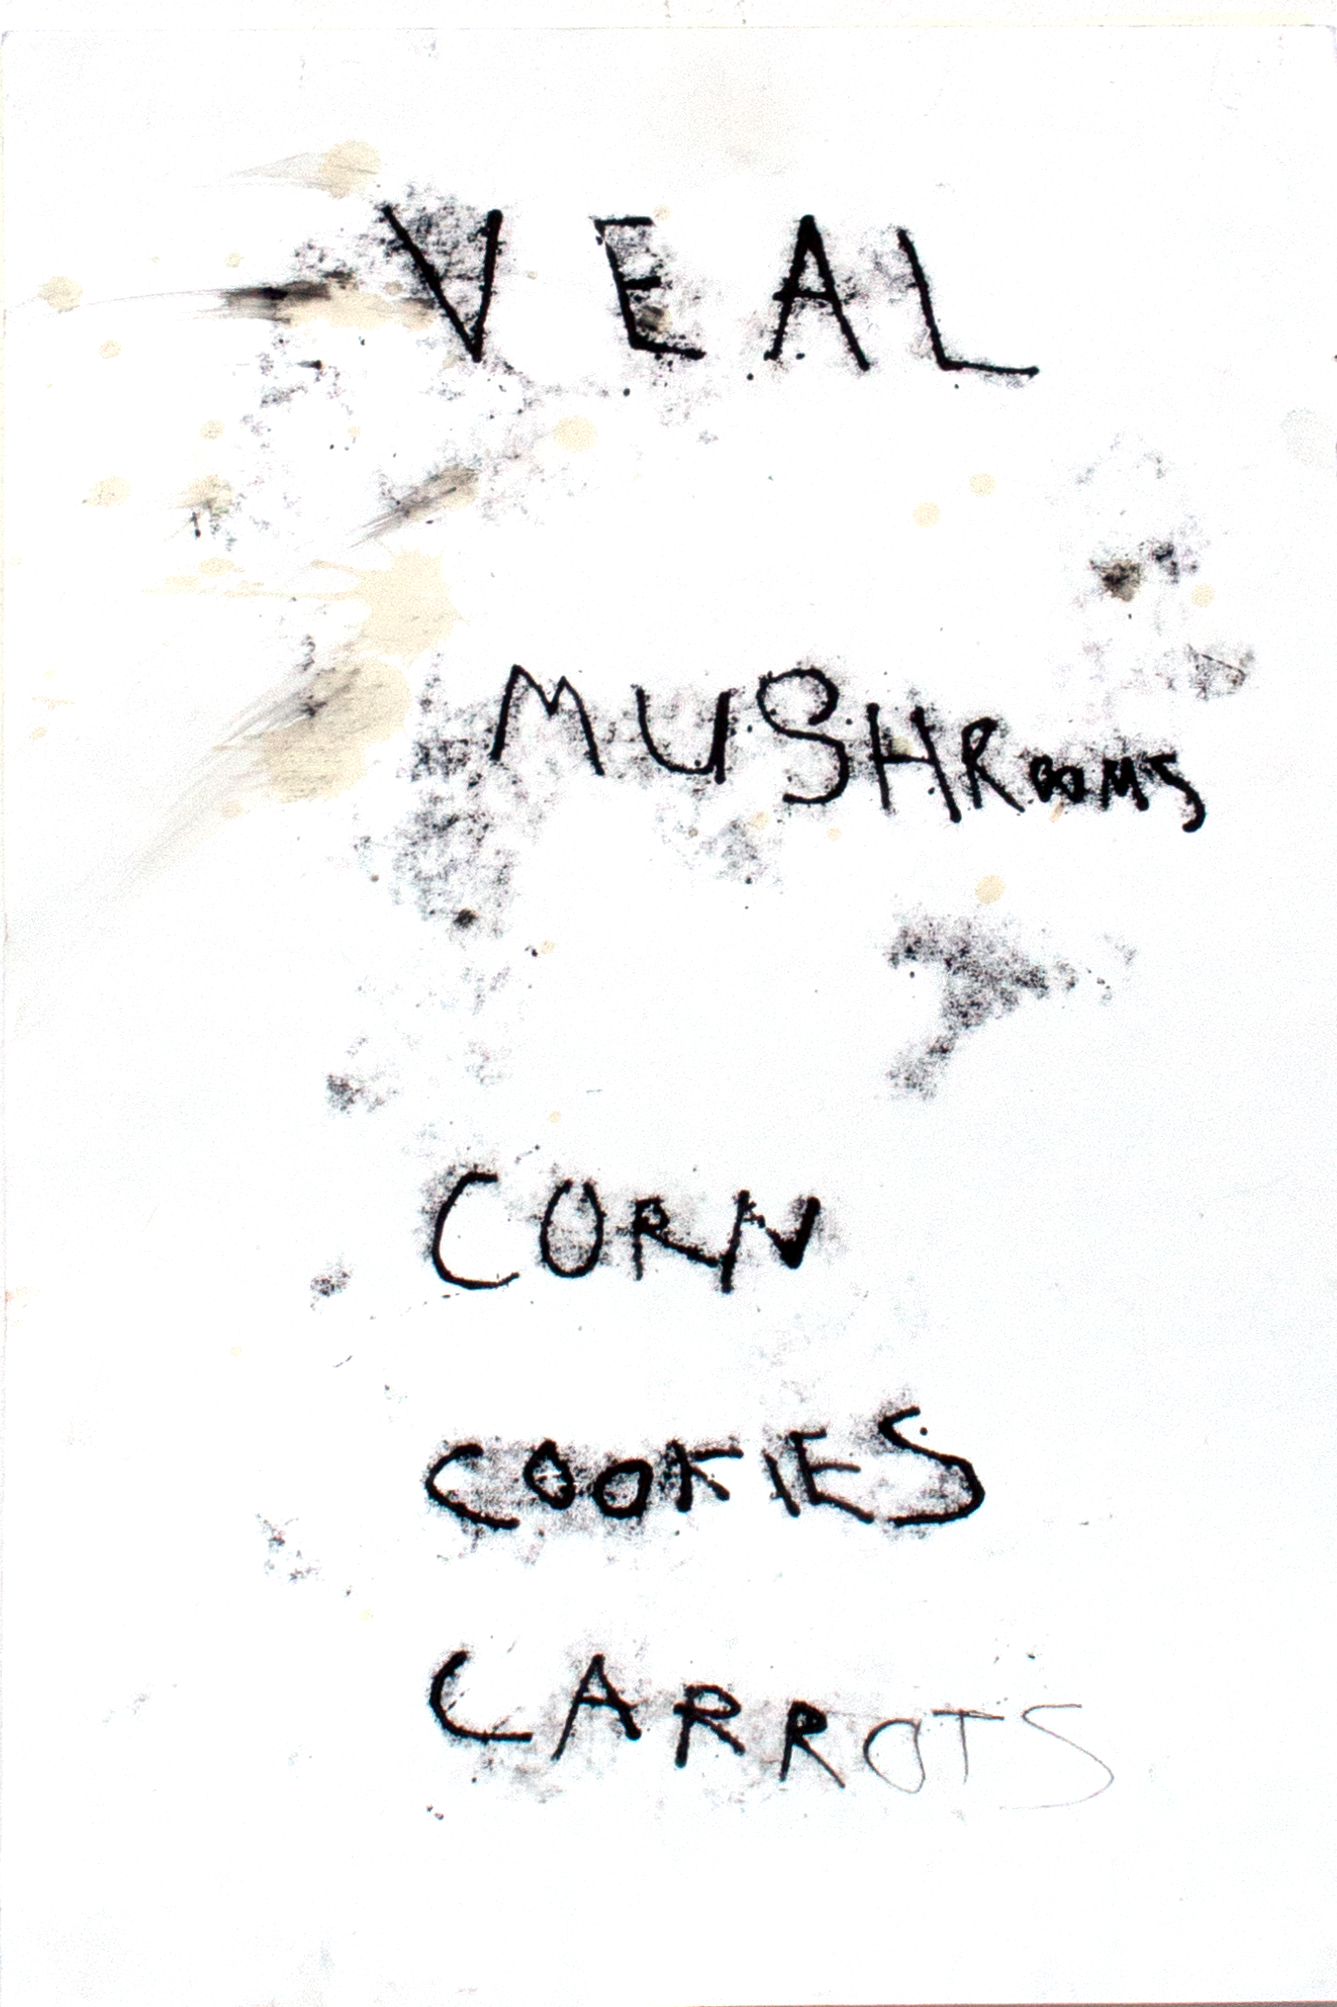 VEAL
MUSHROOMS
CORN
COOKIES
CARROTS